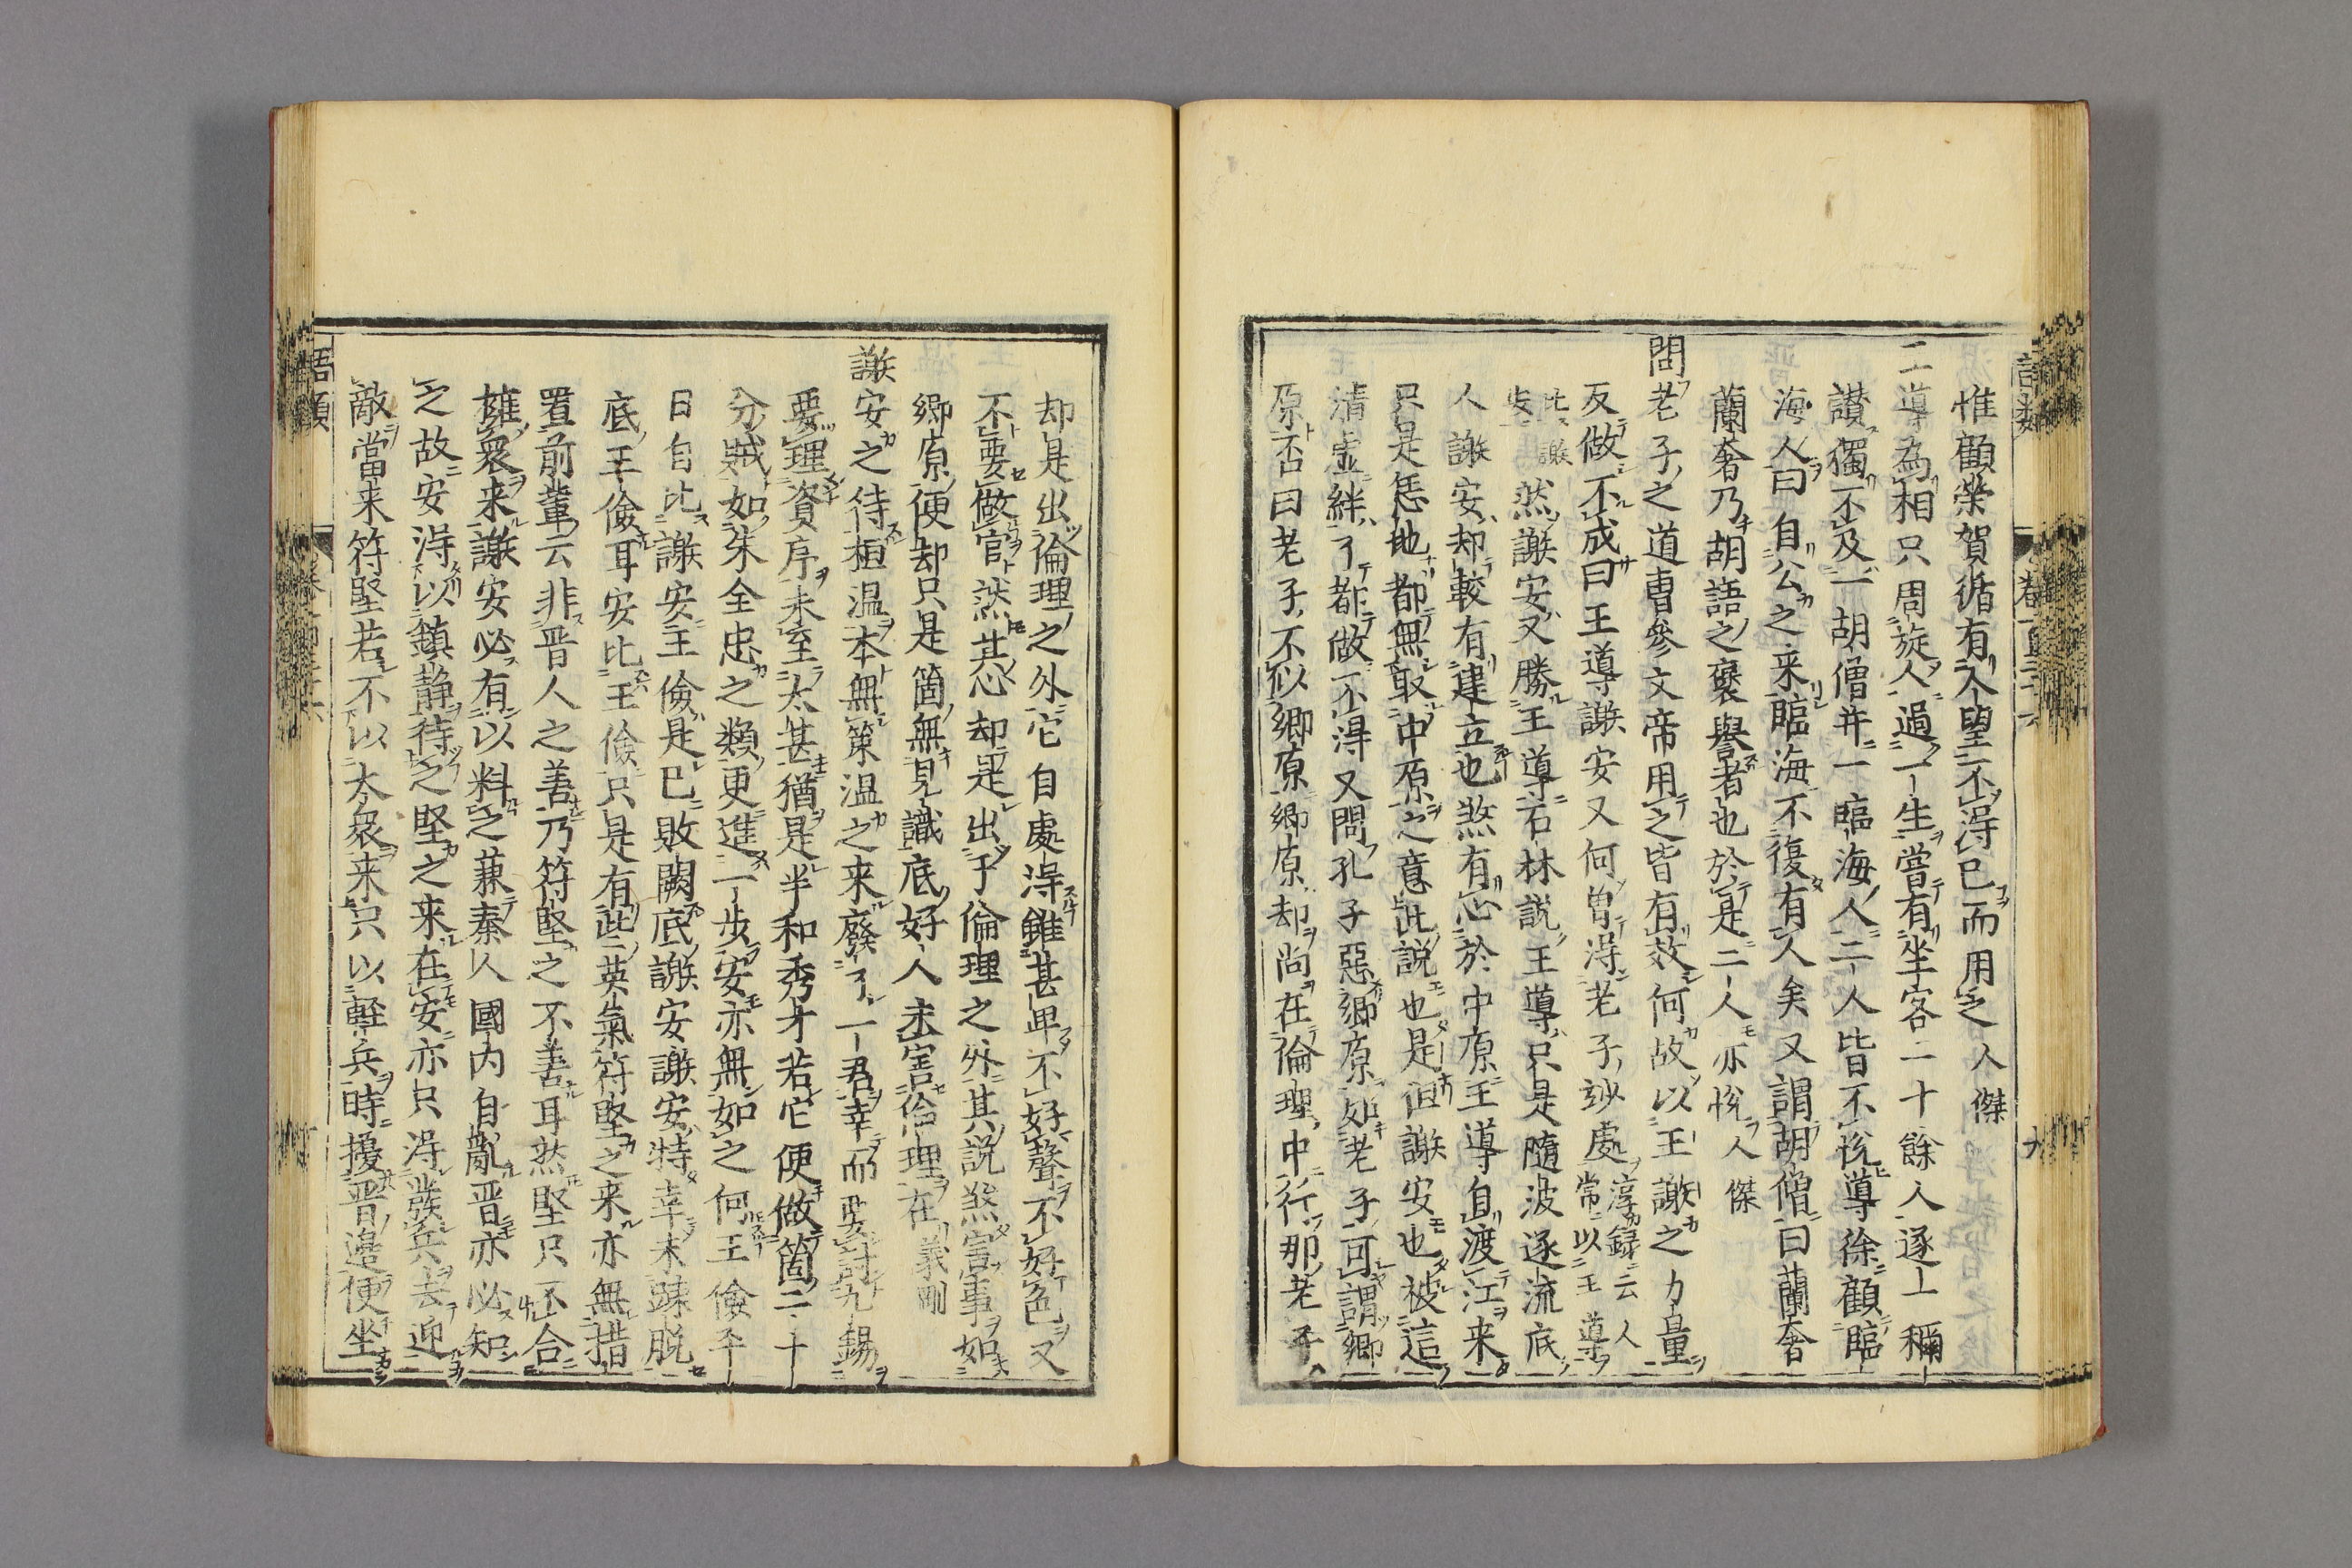 惟顧榮賀循有人望不得已而用之人傑
導為相只周旋人過一生嘗有坐客二十餘人逐一稱
讃獨不及一胡僧并一臨海人二人皆不恱導徐顧臨
海人曰自公之来臨海不復有人矣又謂胡僧曰蘭奢
蘭奢乃胡語之褒譽者也於是二人亦恱人傑
問老子之道曹參文帝用之皆有效何故以王謝之力量
反做不成曰王導謝安又何曽得老子妙處淳録云人常以王導
比謝安然謝安又勝王導石林説王導只是隨波逐流底
人謝安却較有建立也煞有心於中原王導自渡江来
只是恁地都無取中原之意此説也是但謝安也被這
清虚絆了都做不得又問孔子惡鄉原如老子可謂鄉
原否曰老子不似鄉原鄉原却尚在倫理中行那老子
却是出倫理之外它自處得雖甚卑不好聲不好色又
不要做官然其心却是出于倫理之外其説煞害事如
鄉原便却只是箇無見識底好人未害倫理在義剛
謝安之待桓温本無策温之来廢了一君幸而要討九錫
要理資序未至太甚猶是半和秀才若它便做箇二十
分賊如朱全忠之類更進一步安亦無如之何王儉平
日自比謝安王儉是已敗闕底謝安謝安特幸未踈脱
底王儉耳安比王儉只是有此英氣符堅之来亦無措
置前輩云非晋人之善乃符堅之不善耳然堅只不合
擁衆来謝安必有以料之兼秦人國内自亂晋亦必知
之故安得以鎮静待之堅之来在安亦只得發兵去迎
敵當来符堅若不以大衆来只以輕兵時擾晋邊便坐
語類